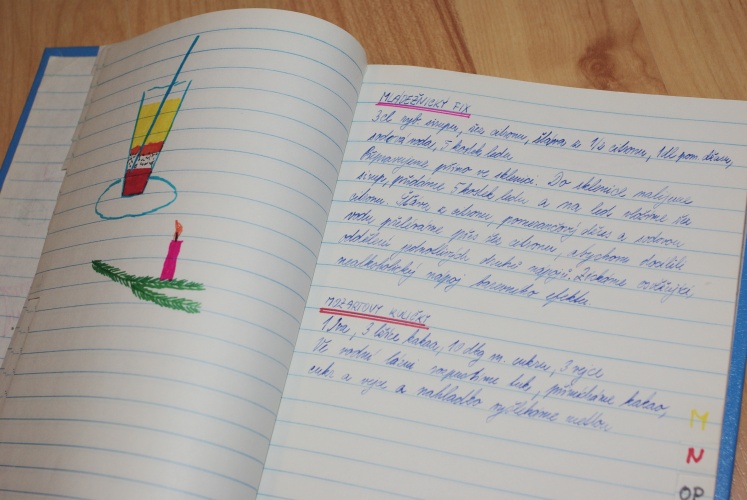 MLÁDEŽNICKÝ FIX
3 cl ryb. sirupu, řez citronu, šťáva z 1/2 citronu, 1 dl pom. džusu,
sodová voda, 5 kostek ledu.
Připravujeme přímo ve sklenici. Do sklenice nalijeme
sirup, přidáme 5 kostek ledu a na led vložíme řez
citronu. Šťávu z citronu, pomerančový džus a sodovou
vodu přiléváme přes řez citronu, abychom docílili
oddělení jednotlivých druhů nápojů. Získáme
nealkoholický nápoj barevného efektu.
MOZARTOVY
1 Iva, 3 lžíce kakaa, 10 dkg m. cukru, 3 vejce
Ve vodní lázni rozpustíme tuk, přimícháme kakao,
cukr a vejce a nahladko
M
N
OP